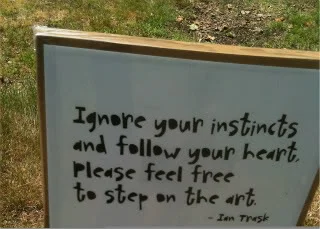 Ignore your instincts
and follow your heart,
please feel free
to step on the art.
- Ian Trask